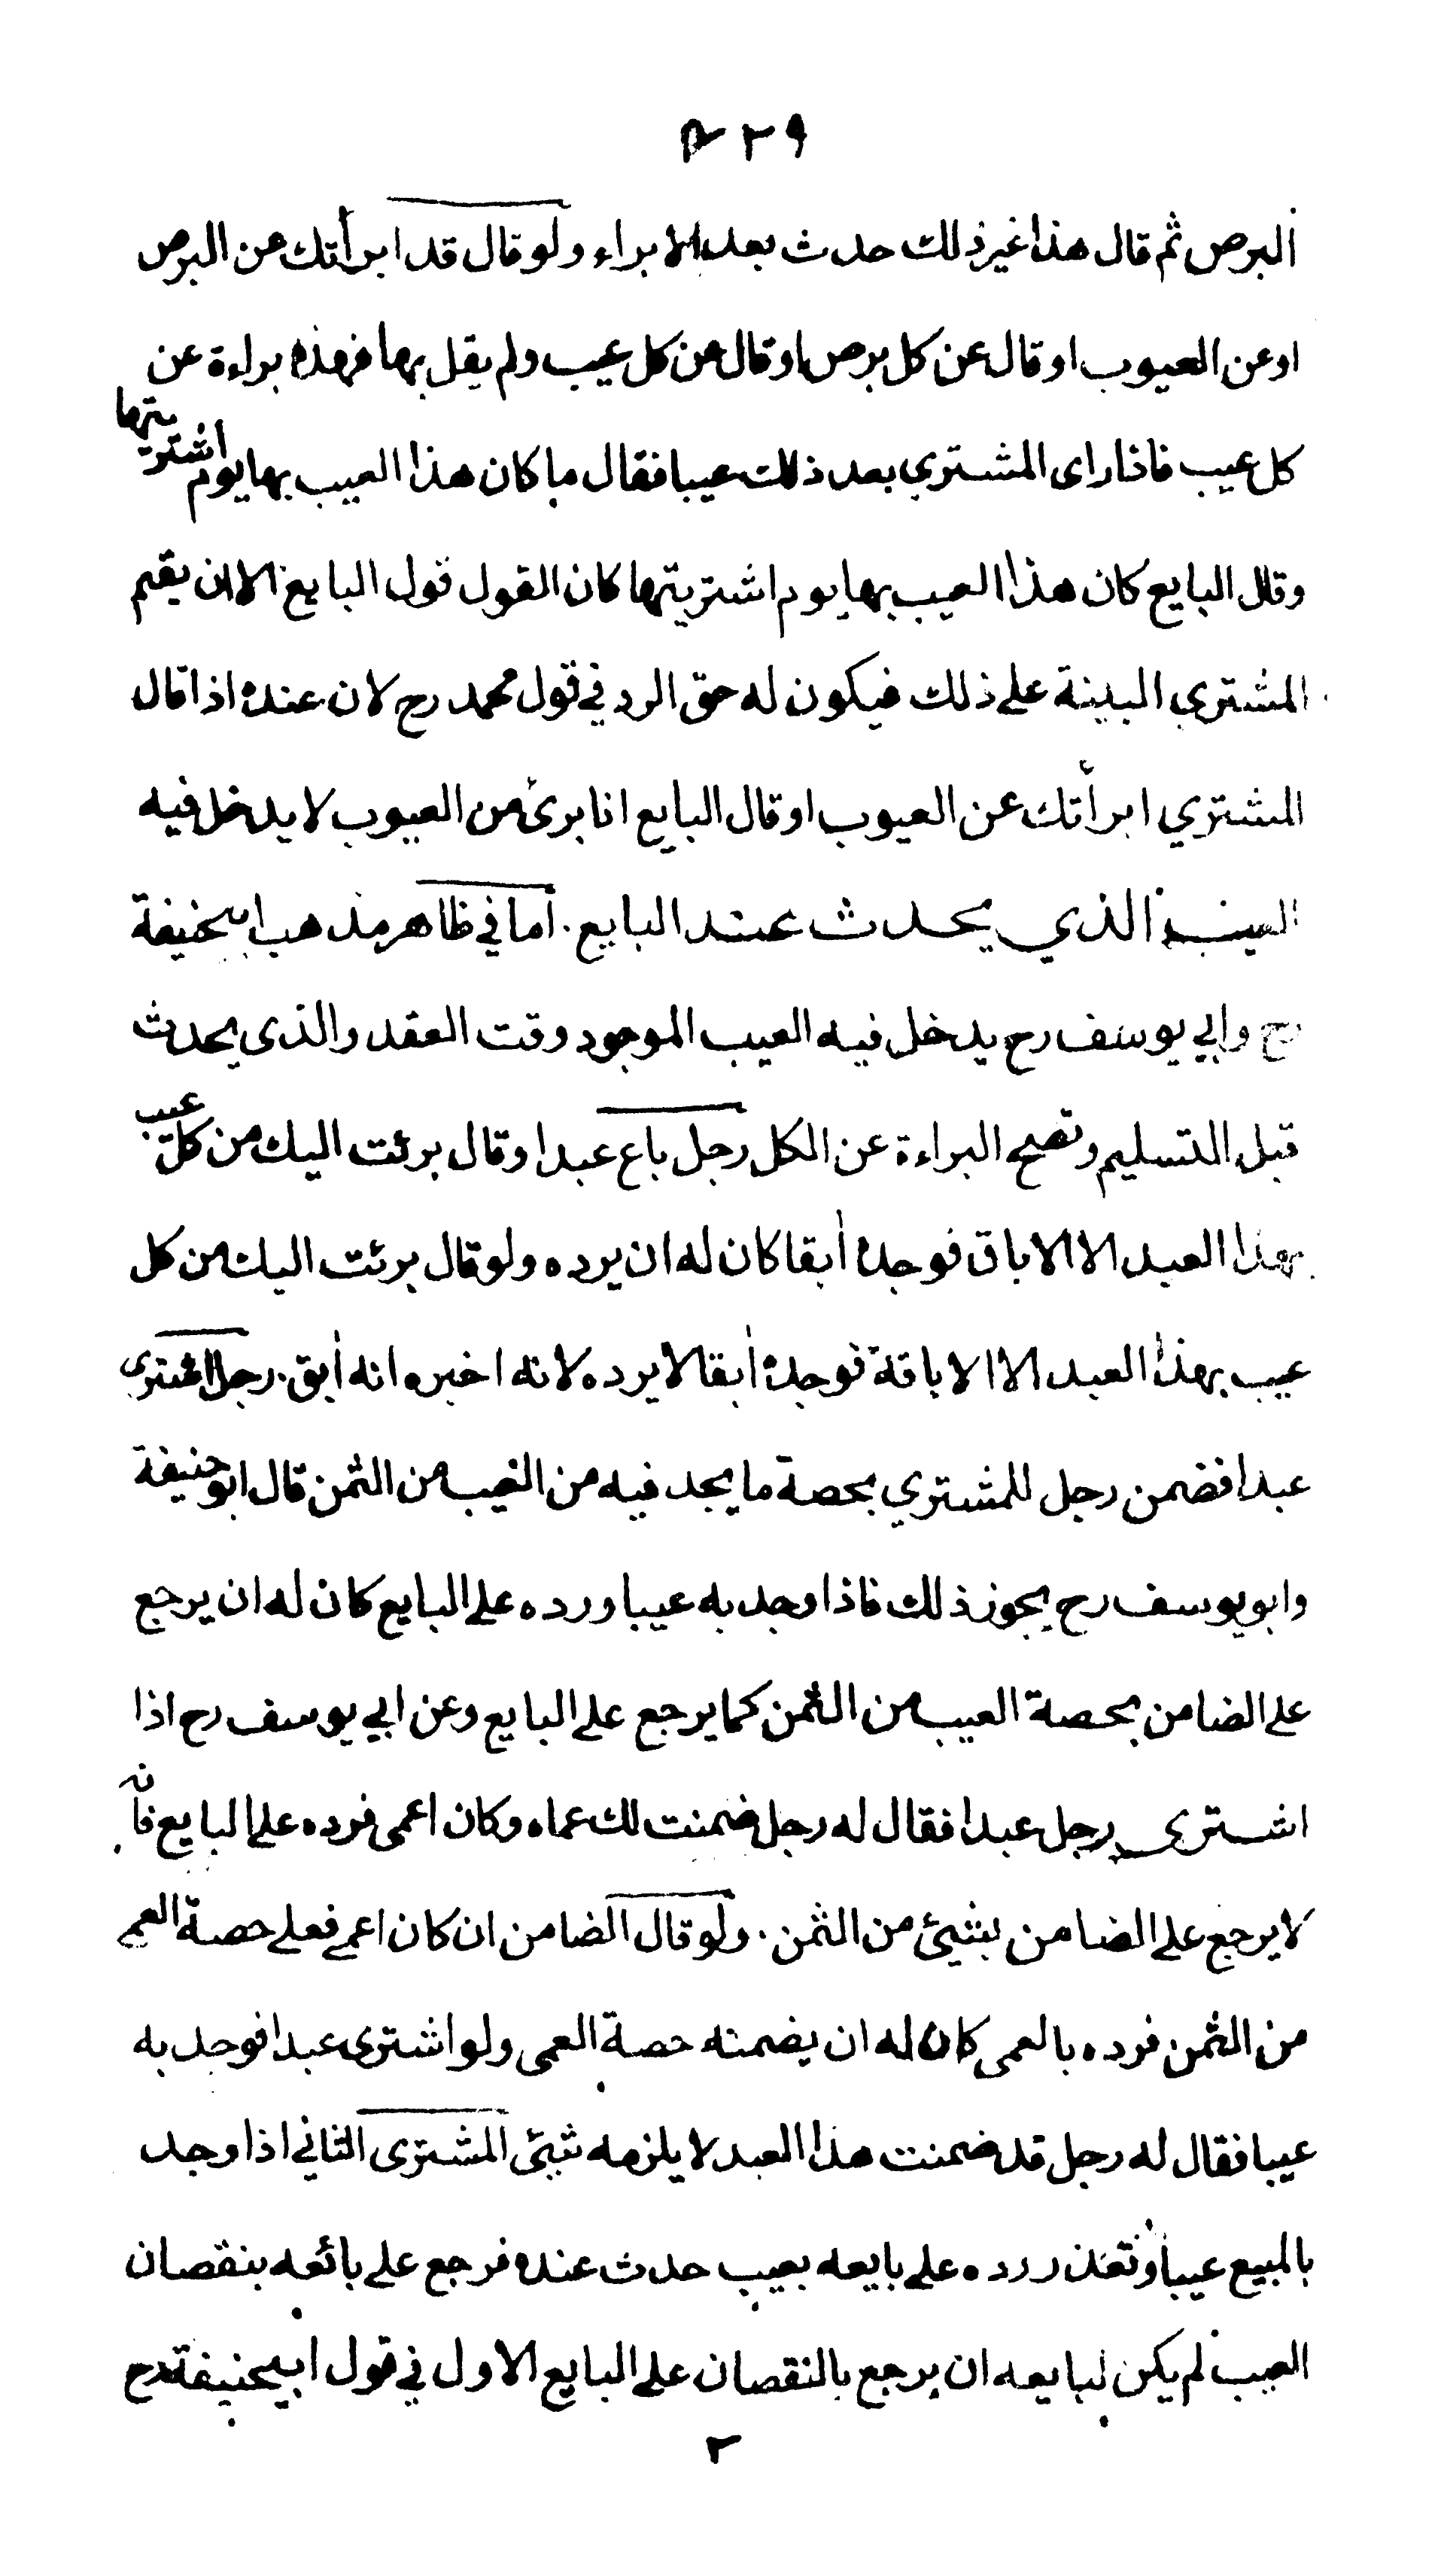 ٤٢٩
البرص ثم قال هذا غير ذلك حدث بعد الابراء ولو قال قد ابرأتك عن البرص
او عن العيوب او قال عن كل برص او قال عن كل عيب ولم يقل بها فهذه براءة عن
كل عيب فاذا راى المشتري بعد ذلك عيبا فقال ما كان هذا العيب بها يوم اشتريتها
وقال البايع كان هذا العيب بها يوم اشتريتها كان القول قول البايع الا ان يقيم
المشتري البينة على ذلك فيكون له حق الرد في قول محمد رح لان عنده اذا قال
المشتري ابرأتك عن العيوب او قال البايع انا برئ من العيوب لا يدخل فيه
العيب الذي يحدث عند البايع . أما في ظاهر مذهب ابيحنيفة
رح وابي يوسف رح يدخل فيه العيب الموجود وقت العقد والذى يحدث
قبل التسليم وتصح البراءة عن الكل رجل باع عبدا وقال برئت اليك من كل عيب
بهذا العبد الا الاباق فوجده أبقا كان له ان يرده ولو قال برئت اليك من كل
عيب بهذا العبد الا الاباقة فوجده أبقا لا يرده لانه اخبره انه أبق . رجل اشترى
عبدا فضمن رجل للمشتري بحصة ما يجد فيه من العيب من الثمن قال ابو حنيفة
وابو يوسف رح يجوز ذلك فاذا وجد به عيبا ورده على البايع كان له ان يرجع
على الضامن بحصة العيب من الثمن كما يرجع على البايع وعن ابي يوسف رح اذا
اشترى رجل عبدا فقال له رجل ضمنت لك عماه وكان اعمى فرده على البايع فانه
لا يرجع على الضامن بشيئ من الثمن . ولو قال الضامن ان كان اعمى فعلى حصة العمى
من الثمن فرده بالعمى كان له ان يضمنه حصة العمى ولو اشترى عبدا فوجد به
عيبا فقال له رجل قد ضمنت هذا العبد لا يلزمه شيئ المشترى الثاني اذا وجد
بالمبيع عيبا وتعذر رده على بايعه بعيب حدث عنده فرجع على بائعه بنقصان
العيب لم يكن لبايعه ان يرجع بالنقصان على البايع الاول في قول ابيحنيفة رح
٢